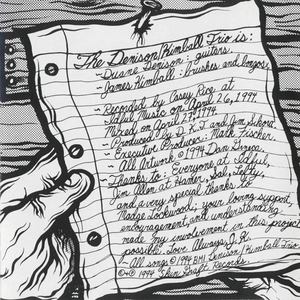 The Denison/Kimball Trio is:
~ Duane Denison: guitars
~ James Kimball: brushes and bongos
~ Recorded by Casey Rice at
Idful Music on April 26, 1994
Mixed on April 27, 1994
~ Produced by D.K.T and Jim
~ Executive Producer: Mark Fischer
~ All Artwork © 1994 Dan Grzeca
~ Thanks to: Everyone at Idful,
Jim, Ellen at Hamer, Sab, Lefty,
and a very special thanks to
Madge Lockwood, your loving support,
encouragement, and understanding
made my involvement in this project
possible. Love Always J.K.
~ All songs © 1994 BMI Denison/Kimball Trio
℗+© 1994 Skin Graft Records